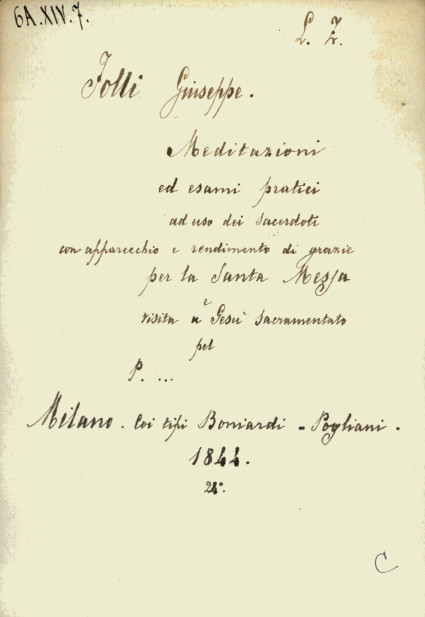 6A.XIV.7.
L. Z.
Folli Giuseppe.
Meditazioni
ed esami pratici
ad uso dei sacerdoti
con apparecchio e rendimento di grazie
per la Santa Messa
e
visita a Gesù sacramentato
pel
P. ...
Milano. Coi tipi Boniardi - Pogliani.
1844.
24°.
C